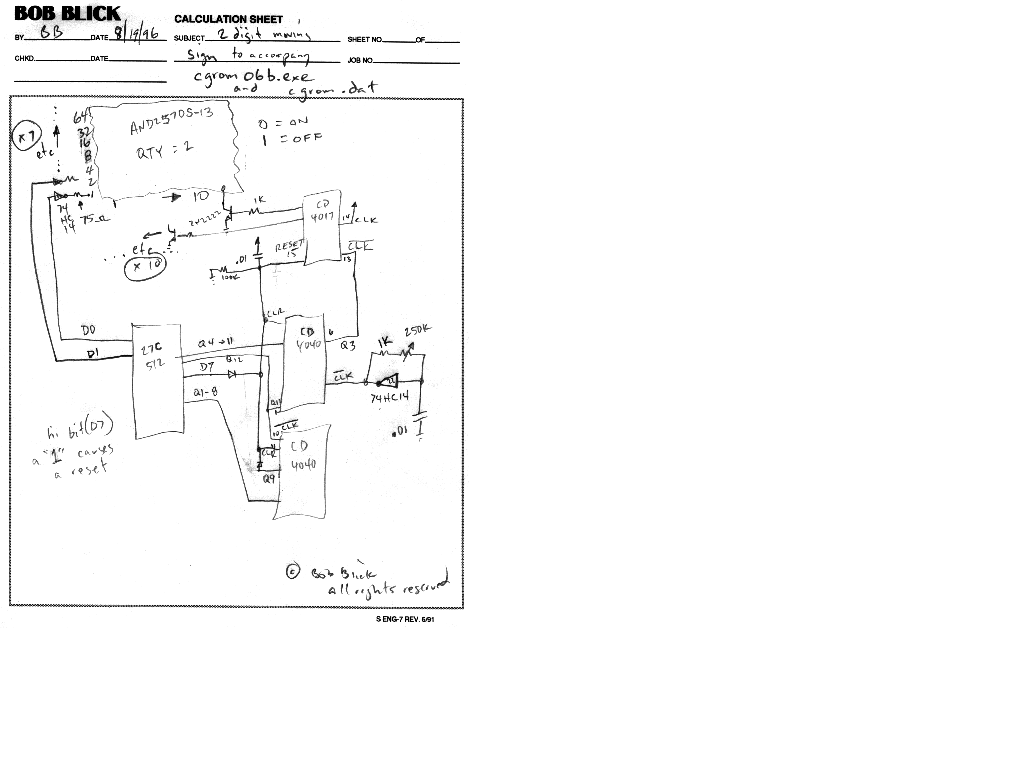 BOB BLICK
CALCULATION SHEET
BY BB DATE 8/19/96 SUBJECT 2 digit moving SHEET NO. OF
CHKD. DATE sign to accompany JOB NO.
cgrom06b.exe
and cgrom.dat
64
32
16
8
4
2
1
x 7
etc
74
HC
14
75Ω
AND2570S-13
QTY = 2
0 = ON
1 = OFF
10
2N2222
1K
CD
4017
14 CLK
CLK
13
RESET
15
.01
100K
etc
x 10
CLR
D0
D1
27C
512
Q4→11
Q12
D7
Q1-8
CD
4040
6
Q3
CLK
1K
250K
74HC14
.01
Q12
10 CLK
CLR
11
Q9
CD
4040
hi bit (D7)
a "1" causes
a reset
© Bob Blick
all rights reserved
S ENG-7 REV. 6/91